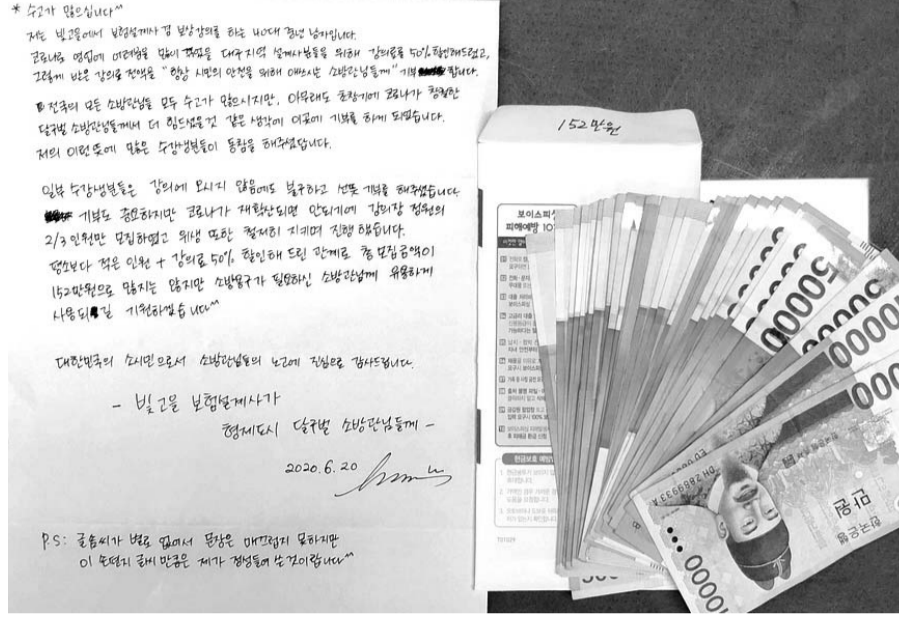 * 수고가 많으십니다^^
저는 빛고을에서 보험설계사 겸 보상강의를 하는 40대 중년 남자입니다.
코로나로 영업에 어려움을 많이 겪었을 대구지역 설계사분들을 위해 강의료를 50% 할인해드렸고,
그렇게 받은 강의료 전액을 "항상 시민의 안전을 위해 애쓰시는 소방관님들께" 기부 합니다.
전국의 모든 소방관님들 모두 수고가 많으시지만, 아무래도 초창기에 코로나가 창궐한
달구벌 소방관님들께서 더 힘드셨을것 같은 생각에 이곳에 기부를 하게 되었습니다.
저의 이런뜻에 많은 수강생분들이 동참을 해주셨답니다.
일부 수강생분들은 강의에 오시지 않음에도 불구하고 선뜻 기부를 해주셨습니다
기부도 중요하지만 코로나가 재확산되면 안되기에 강의장 정원의
2/3 인원만 모집하였고 위생 또한 철저히 지키며 진행 했습니다.
평소보다 적은 인원 + 강의료 50% 할인해 드린 관계로 총 모집금액이
152만원으로 많지는 않지만 소방용구가 필요하신 소방관님께 유용하게
사용되길 기원하겠습니다^^
대한민국의 소시민으로서 소방관님들의 노고에 진심으로 감사드립니다.
- 빛고을 보험설계사가
형제도시 달구벌 소방관님들께 -
2020.6.20
P.S: 글솜씨가 별로 없어서 문장은 매끄럽지 못하지만
이 손편지 글씨 만큼은 제가 정성들여 쓴 것이랍니다^^
152만원
보이스피싱
피해예방 10
현금보호 예방
50000
50000
0000
0000
DH 2885933 A
만원
한국은행
10000